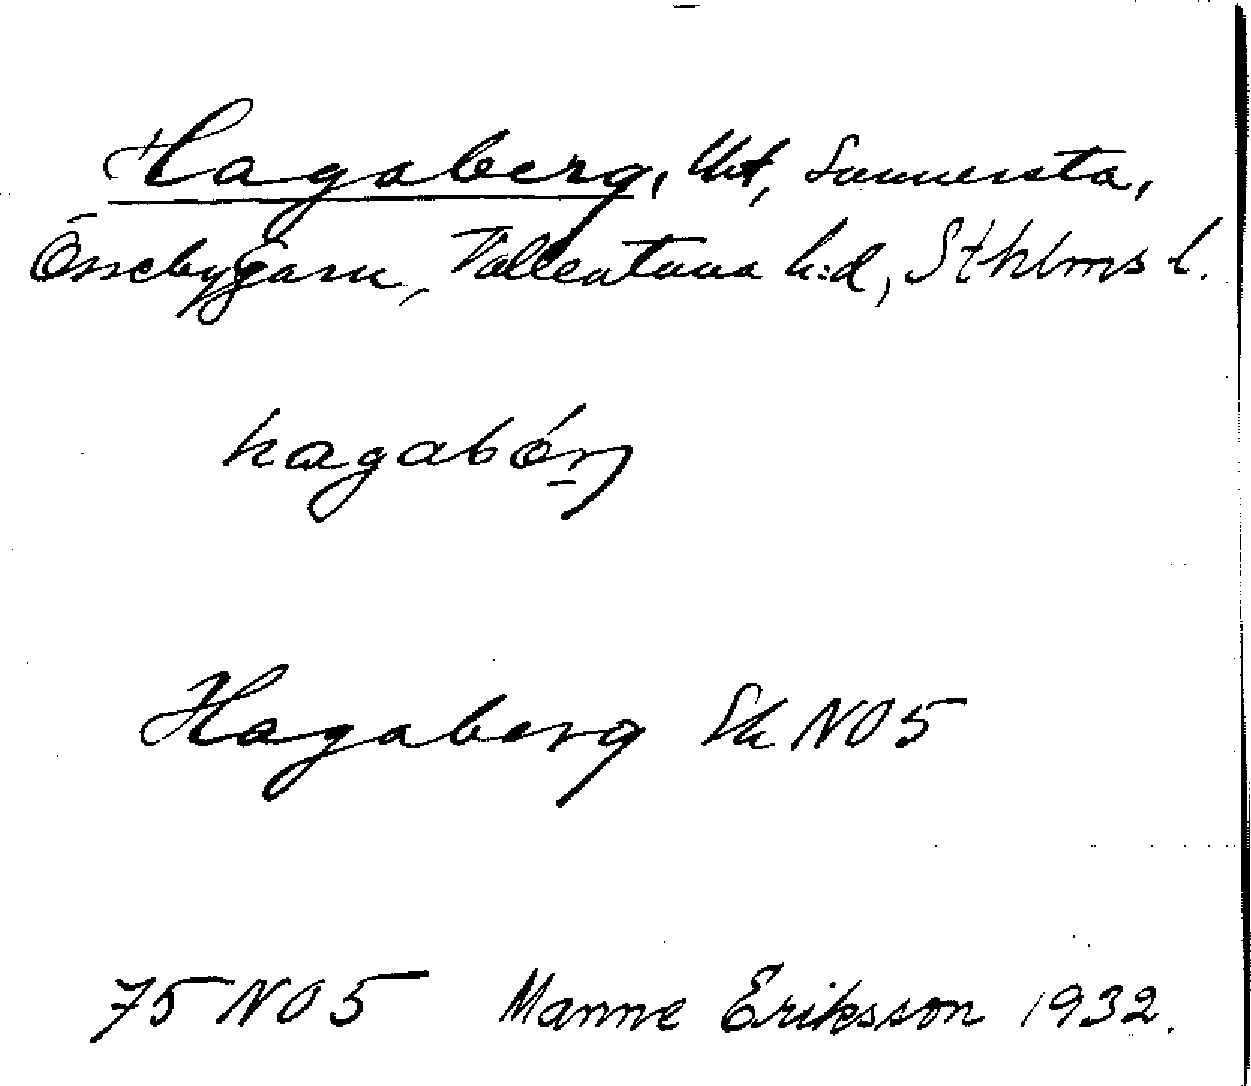 Hagaberg, Uht, Sunnersta,
Össebygarn, Vallentuna h:d, Sthlms l.
hagabérj
Hagaberg Sk NO5
75 NO 5 Manne Eriksson 1932.